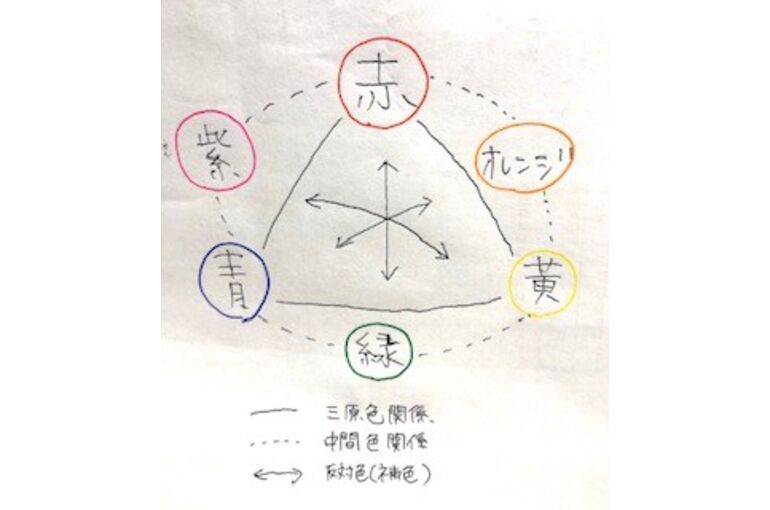 赤
紫
オレンジ
青
黄
緑
三原色関係
中間色関係
反対色(補色)